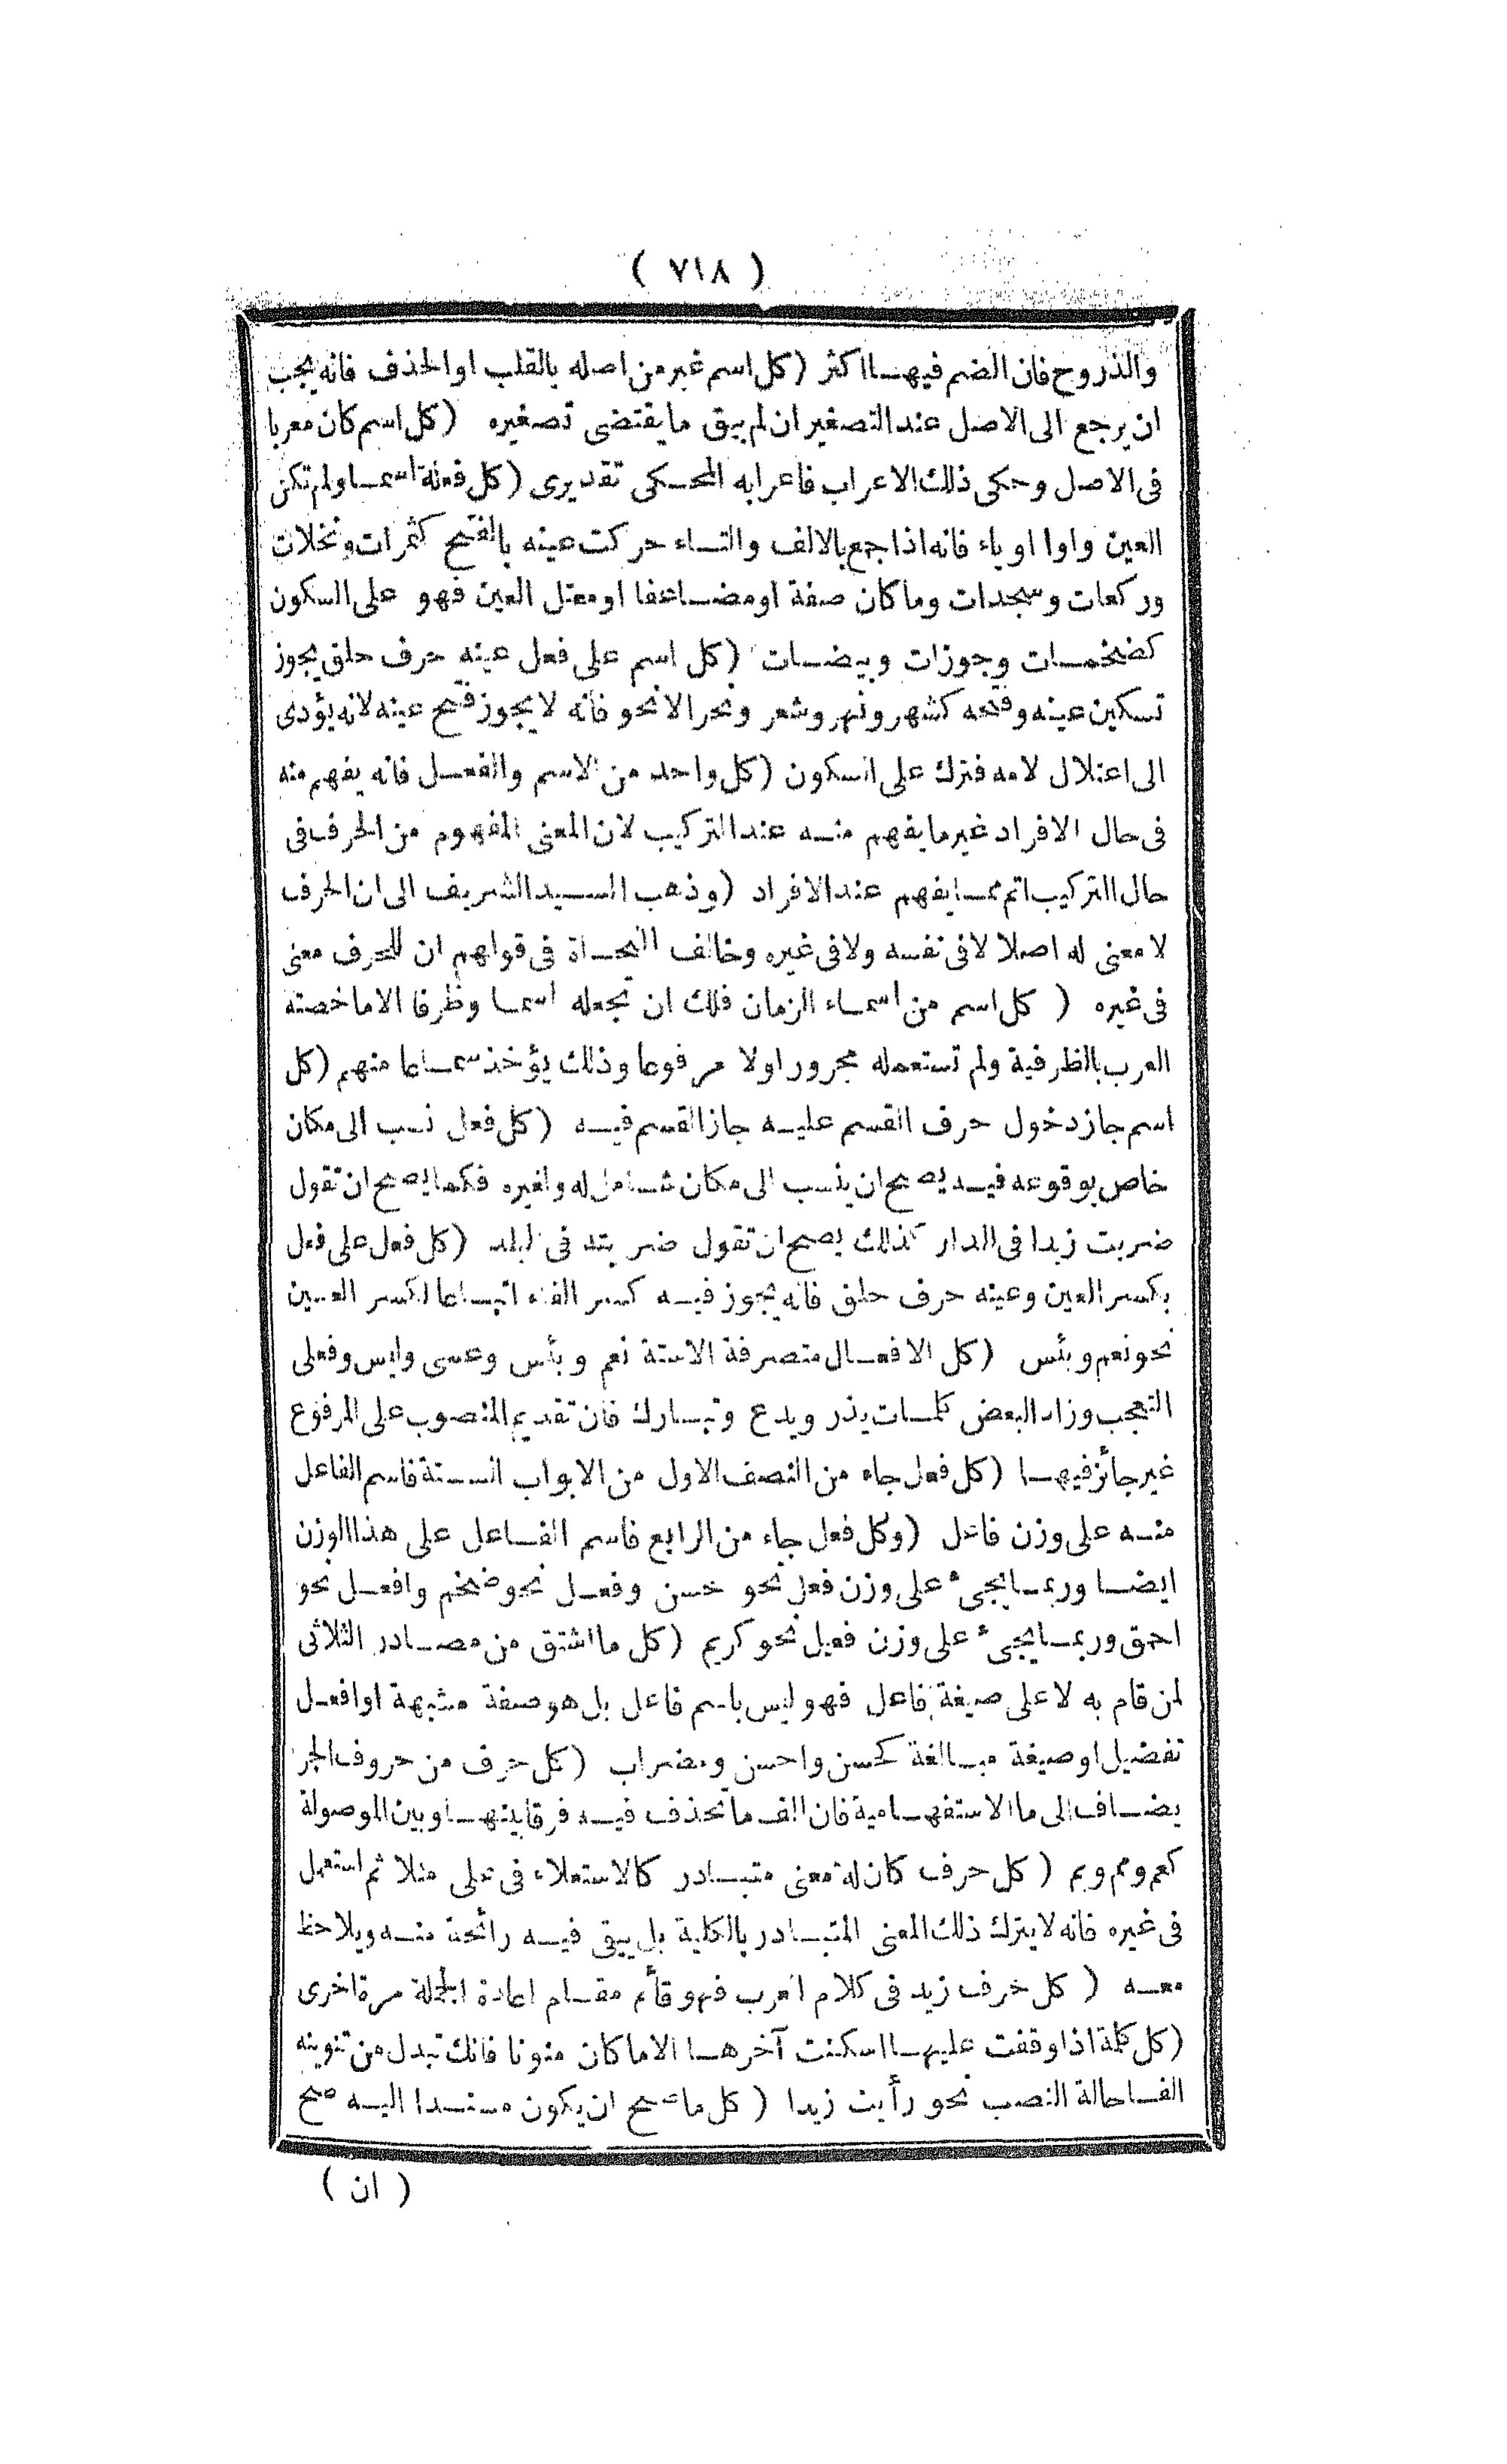 ( ٧١٨ )
والذروح فان الضم فيهما اكثر (كل اسم غير من اصله بالقلب او الحذف فانه يجب
ان يرجع الى الاصل عند التصغير ان لم يبق ما يقتضى تصغيره (كل اسم كان معربا
فى الاصل وحكى ذلك الاعراب فاعرابه المحكى تقديرى (كل فعلة اسما ولم تكن
العين واوا او ياء فانه اذا جمع بالالف والتاء حركت عينه بالفتح كثمرات ونخلات
وركعات وسجدات وما كان صفة او مضاعفا او معتل العين فهو على السكون
كضخمات وجوزات وبيضات (كل اسم على فعل عينه حرف حلق يجوز
تسكين عينه وفتحه كشهر ونهر وشعر ونحر الا نحو فانه لا يجوز فتح عينه لانه يؤدى
الى اعتلال لامه فترك على السكون (كل واحد من الاسم والفعل فانه يفهم منه
فى حال الافراد غير ما يفهم منه عند التركيب لان المعنى المفهوم من الحرف فى
حال التركيب اتم مما يفهم عند الافراد (وذهب السيد الشريف الى ان الحرف
لا معنى له اصلا لا فى نفسه ولا فى غيره وخالف النحاة فى قولهم ان للحرف معنى
فى غيره ( كل اسم من اسماء الزمان فلك ان تجعله اسما وظرفا الا ما خصته
العرب بالظرفية ولم تستعمله مجرورا ولا مرفوعا وذلك يؤخذ سماعا منهم (كل
اسم جاز دخول حرف القسم عليه جاز القسم فيه (كل فعل نسب الى مكان
خاص بوقوعه فيه يصح ان ينسب الى مكان شامل له ولغيره فكما يصح ان تقول
ضربت زيدا فى الدار كذلك يصح ان تقول ضربته فى البلد (كل فعل على فعل
بكسر العين وعينه حرف حلق فانه يجوز فيه كسر الفاء اتباعا لكسر العين
نحو نعم وبئس (كل الافعال متصرفة الا ستة نعم وبئس وعسى وليس وفعلى
التعجب وزاد البعض كلمات يذر ويدع وتبارك فان تقديم المنصوب على المرفوع
غير جائز فيها (كل فعل جاء من النصف الاول من الابواب الستة فاسم الفاعل
منه على وزن فاعل (وكل فعل جاء من الرابع فاسم الفاعل على هذا الوزن
ايضا وربما يجىء على وزن فعل نحو خسن وفعل نحو ضخم وافعل نحو
احمق وربما يجىء على وزن فعيل نحو كريم (كل ما اشتق من مصادر الثلاثى
لمن قام به لا على صيغة فاعل فهو ليس باسم فاعل بل هو صفة مشبهة او افعل
تفضيل او صيغة مبالغة كحسن واحسن ومضراب (كل حرف من حروف الجر
يضاف الى ما الاستفهامية فان الف ما تحذف فيه فرقا بينها وبين الموصولة
كعم ومم وبم ( كل حرف كان له معنى متبادر كالاستعلاء فى على مثلا ثم استعمل
فى غيره فانه لا يترك ذلك المعنى المتبادر بالكلية بل يبقى فيه رائحة منه ويلاحظ
معه ( كل حرف زيد فى كلام العرب فهو قائم مقام اعادة الجملة مرة اخرى
(كل كلمة اذا وقفت عليها اسكنت آخرها الا ما كان منونا فانك تبدل من تنوينه
الفا حالة النصب نحو رأيت زيدا ( كل ما صح ان يكون مسندا اليه صح
( ان )